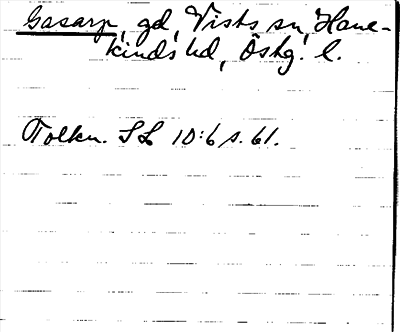 Gasarp, gd, Vists sn, Hane-
kinds hd, Östg. l.
Tolkn. SL 10:6 s. 61.